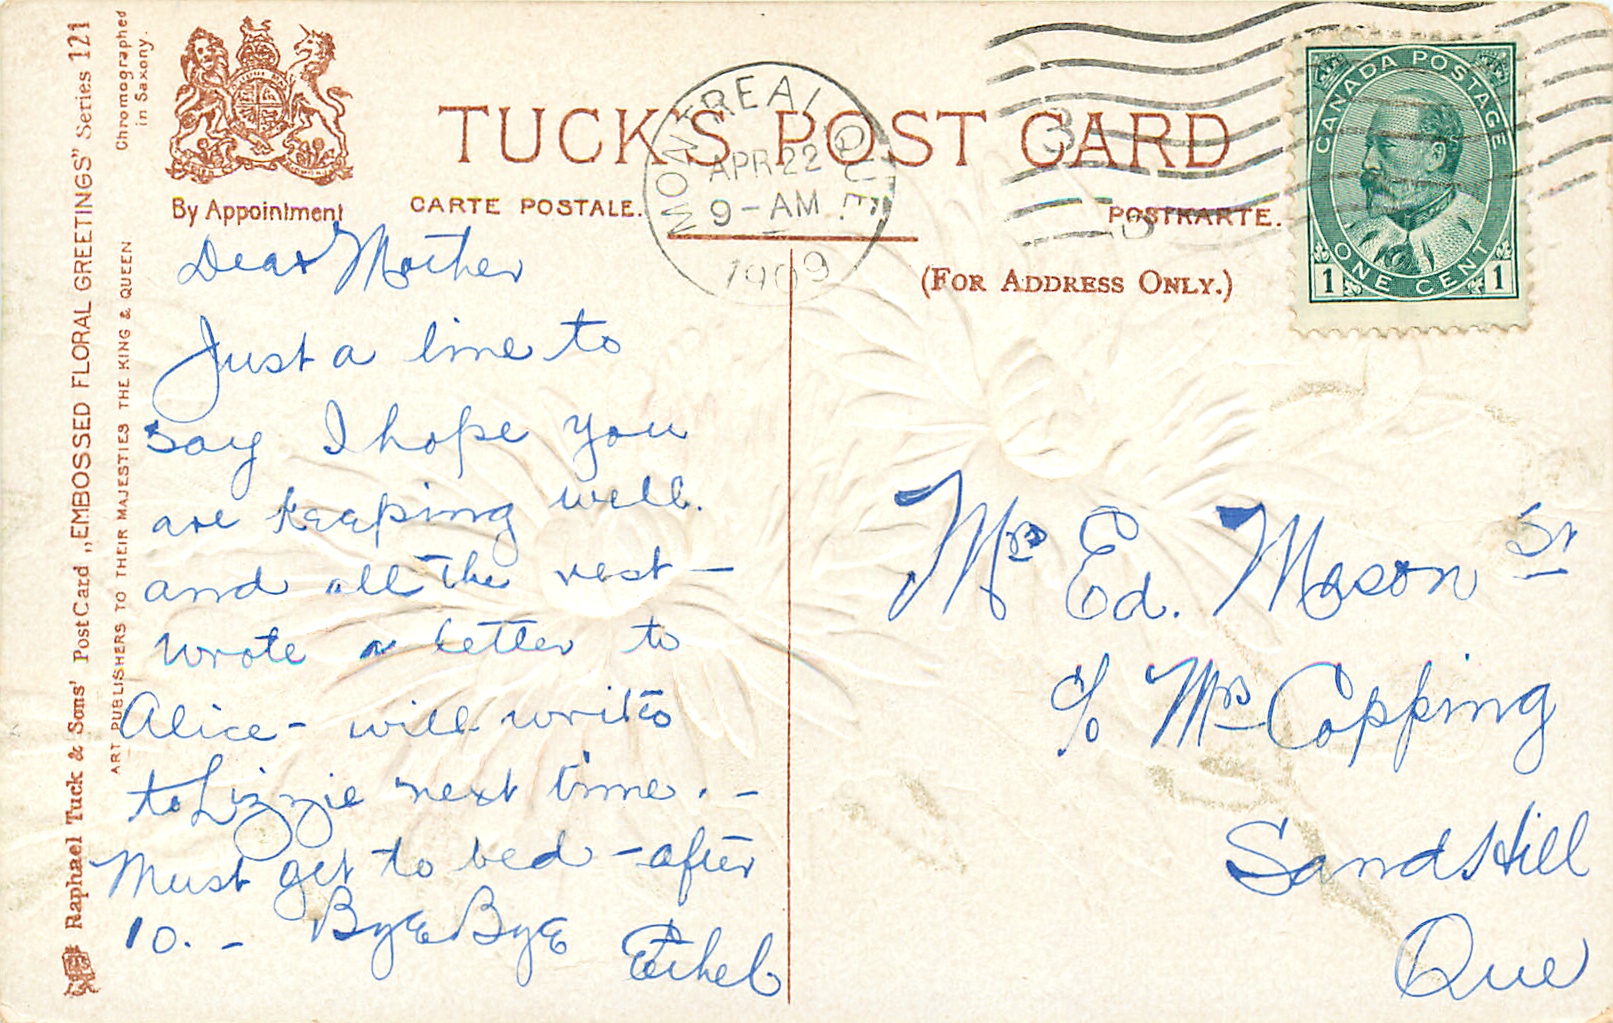 Raphael Tuck & Sons' Post Card „EMBOSSED FLORAL GREETINGS" Series 121
ART PUBLISHERS TO THEIR MAJESTIES THE KING & QUEEN
Chromographed
in Saxony.
By Appointment
TUCK'S POST CARD
CARTE POSTALE.
POSTKARTE.
(FOR ADDRESS ONLY.)
MONTREAL QUE.
APR 22
9-AM
1909
CANADA POSTAGE
ONE CENT
1 1
Dear Mother
Just a line to
say I hope you
are keeping well.
and all the rest –
wrote a letter to
Alice – will write
to Lizzie next time. –
Must get to bed – after
10. – Bye Bye
Ethel
Mrs Ed. Mason Sr
c/o Mrs Copping
Sand Hill
Que